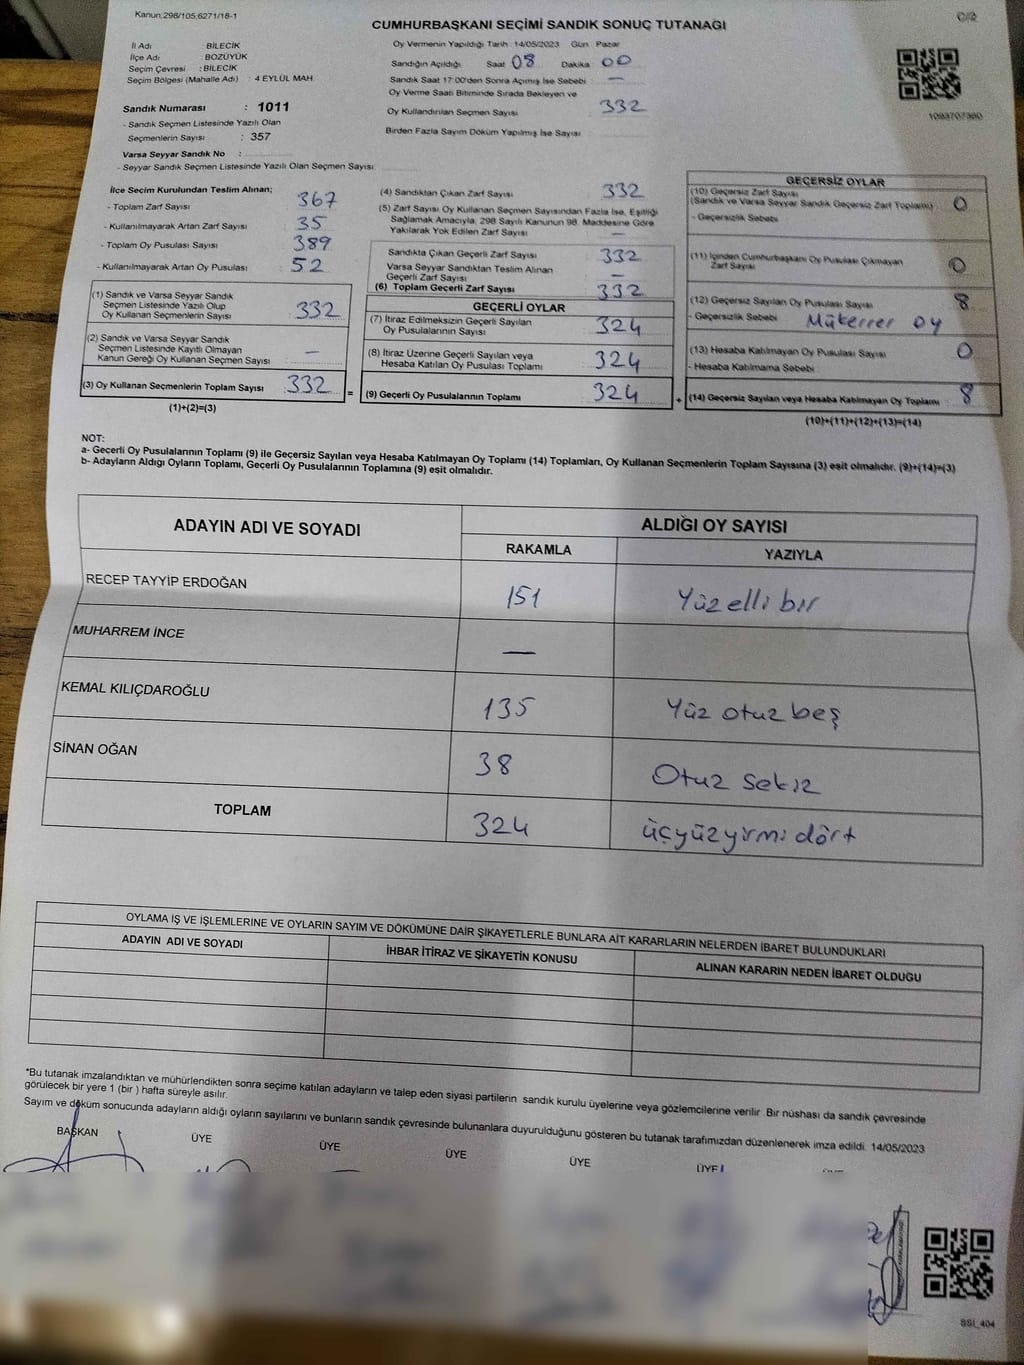 Kanun:298/105,6271/18-1
C/2
CUMHURBAŞKANI SEÇİMİ SANDIK SONUÇ TUTANAĞI
İl Adı : BİLECİK
İlçe Adı : BOZÜYÜK
Seçim Çevresi : BİLECİK
Seçim Bölgesi (Mahalle Adı) : 4 EYLÜL MAH.
Sandık Numarası : 1011
- Sandık Seçmen Listesinde Yazılı Olan
Seçmenlerin Sayısı : 357
Varsa Seyyar Sandık No :
- Seyyar Sandık Seçmen Listesinde Yazılı Olan Seçmen Sayısı:
Oy Vermenin Yapıldığı Tarih :14/05/2023 Gün : Pazar
Sandığın Açıldığı: Saat 08 Dakika 00
Sandık Saat 17:00'den Sonra Açımış İse Sebebi : —
Oy Verme Saati Bitiminde Sırada Bekleyen ve
Oy Kullandırılan Seçmen Sayısı : 332
Birden Fazla Sayım Döküm Yapılmış İse Sayısı
1093707360
İlçe Seçim Kurulundan Teslim Alınan;
- Toplam Zarf Sayısı : 367
- Kullanılmayarak Artan Zarf Sayısı : 35
- Toplam Oy Pusulası Sayısı : 389
- Kullanılmayarak Artan Oy Pusulası : 52
(1) Sandık ve Varsa Seyyar Sandık
Seçmen Listesinde Yazılı Olup
Oy Kullanan Seçmenlerin Sayısı : 332
(2) Sandık ve Varsa Seyyar Sandık
Seçmen Listesinde Kayıtlı Olmayan
Kanun Gereği Oy Kullanan Seçmen Sayısı : —
(3) Oy Kullanan Seçmenlerin Toplam Sayısı : 332 =
(1)+(2)=(3)
(4) Sandıktan Çıkan Zarf Sayısı : 332
(5) Zarf Sayısı Oy Kullanan Seçmen Sayısından Fazla İse, Eşitliği
Sağlamak Amacıyla, 298 Sayılı Kanunun 98. Maddesine Göre
Yakılarak Yok Edilen Zarf Sayısı : —
Sandıkta Çıkan Geçerli Zarf Sayısı : 332
Varsa Seyyar Sandıktan Teslim Alınan
Geçerli Zarf Sayısı : —
(6) Toplam Geçerli Zarf Sayısı : 332
GEÇERLİ OYLAR
(7) İtiraz Edilmeksizin Geçerli Sayılan
Oy Pusulalarının Sayısı : 324
(8) İtiraz Üzerine Geçerli Sayılan veya
Hesaba Katılan Oy Pusulası Toplamı : 324
(9) Geçerli Oy Pusulalarının Toplamı : 324 +
GEÇERSİZ OYLAR
(10) Geçersiz Zarf Sayısı
(Sandık ve Varsa Seyyar Sandık Geçersiz Zarf Toplamı) : 0
- Geçersizlik Sebebi :
(11) İçinden Cumhurbaşkanı Oy Pusulası Çıkmayan
Zarf Sayısı : 0
(12) Geçersiz Sayılan Oy Pusulası Sayısı : 8
- Geçersizlik Sebebi : Mükerrer oy
(13) Hesaba Katılmayan Oy Pusulası Sayısı : 0
- Hesaba Katılmama Sebebi :
(14) Geçersiz Sayılan veya Hesaba Katılmayan Oy Toplamı : 8
(10)+(11)+(12)+(13)=(14)
NOT:
a- Geçerli Oy Pusulalarının Toplamı (9) ile Geçersiz Sayılan veya Hesaba Katılmayan Oy Toplamı (14) Toplamları, Oy Kullanan Seçmenlerin Toplam Sayısına (3) eşit olmalıdır. (9)+(14)=(3)
b- Adayların Aldığı Oyların Toplamı, Geçerli Oy Pusulalarının Toplamına (9) eşit olmalıdır.
ADAYIN ADI VE SOYADI
ALDIĞI OY SAYISI
RAKAMLA YAZIYLA
RECEP TAYYİP ERDOĞAN 151 Yüz elli bir
MUHARREM İNCE —
KEMAL KILIÇDAROĞLU 135 Yüz otuz beş
SİNAN OĞAN 38 Otuz sekiz
TOPLAM 324 üçyüzyirmi dört
OYLAMA İŞ VE İŞLEMLERİNE VE OYLARIN SAYIM VE DÖKÜMÜNE DAİR ŞİKAYETLERLE BUNLARA AİT KARARLARIN NELERDEN İBARET BULUNDUKLARI
ADAYIN ADI VE SOYADI İHBAR İTİRAZ VE ŞİKAYETİN KONUSU ALINAN KARARIN NEDEN İBARET OLDUĞU
*Bu tutanak imzalandıktan ve mühürlendikten sonra seçime katılan adayların ve talep eden siyasi partilerin sandık kurulu üyelerine veya gözlemcilerine verilir. Bir nüshası da sandık çevresinde
görülecek bir yere 1 (bir ) hafta süreyle asılır.
Sayım ve döküm sonucunda adayların aldığı oyların sayılarını ve bunların sandık çevresinde bulunanlara duyurulduğunu gösteren bu tutanak tarafımızdan düzenlenerek imza edildi. 14/05/2023
BAŞKAN ÜYE ÜYE ÜYE ÜYE ÜYE
SSI_404